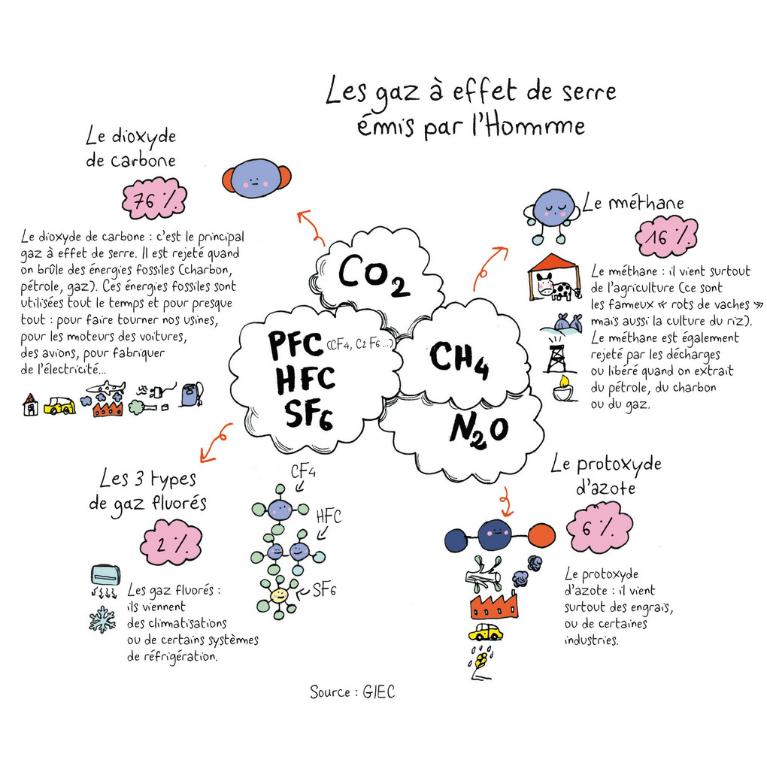 Les gaz à effet de serre
émis par l'Homme
Le dioxyde
de carbone
76 %
Le dioxyde de carbone : c'est le principal
gaz à effet de serre. Il est rejeté quand
on brûle des énergies fossiles (charbon,
pétrole, gaz). Ces énergies fossiles sont
utilisées tout le temps et pour presque
tout : pour faire tourner nos usines,
pour les moteurs des voitures,
des avions, pour fabriquer
de l'électricité...
CO2
PFC (CF4, C2F6...)
HFC
SF6
CH4
N2O
Le méthane
16 %
Le méthane : il vient surtout
de l'agriculture (ce sont
les fameux « rots de vaches »
mais aussi la culture du riz).
Le méthane est également
rejeté par les décharges
ou libéré quand on extrait
du pétrole, du charbon
ou du gaz.
Les 3 types
de gaz fluorés
2 %
Les gaz fluorés :
ils viennent
des climatisations
ou de certains systèmes
de réfrigération.
CF4
HFC
SF6
Le protoxyde
d'azote
6 %
Le protoxyde
d'azote : il vient
surtout des engrais,
ou de certaines
industries.
Source : GIEC